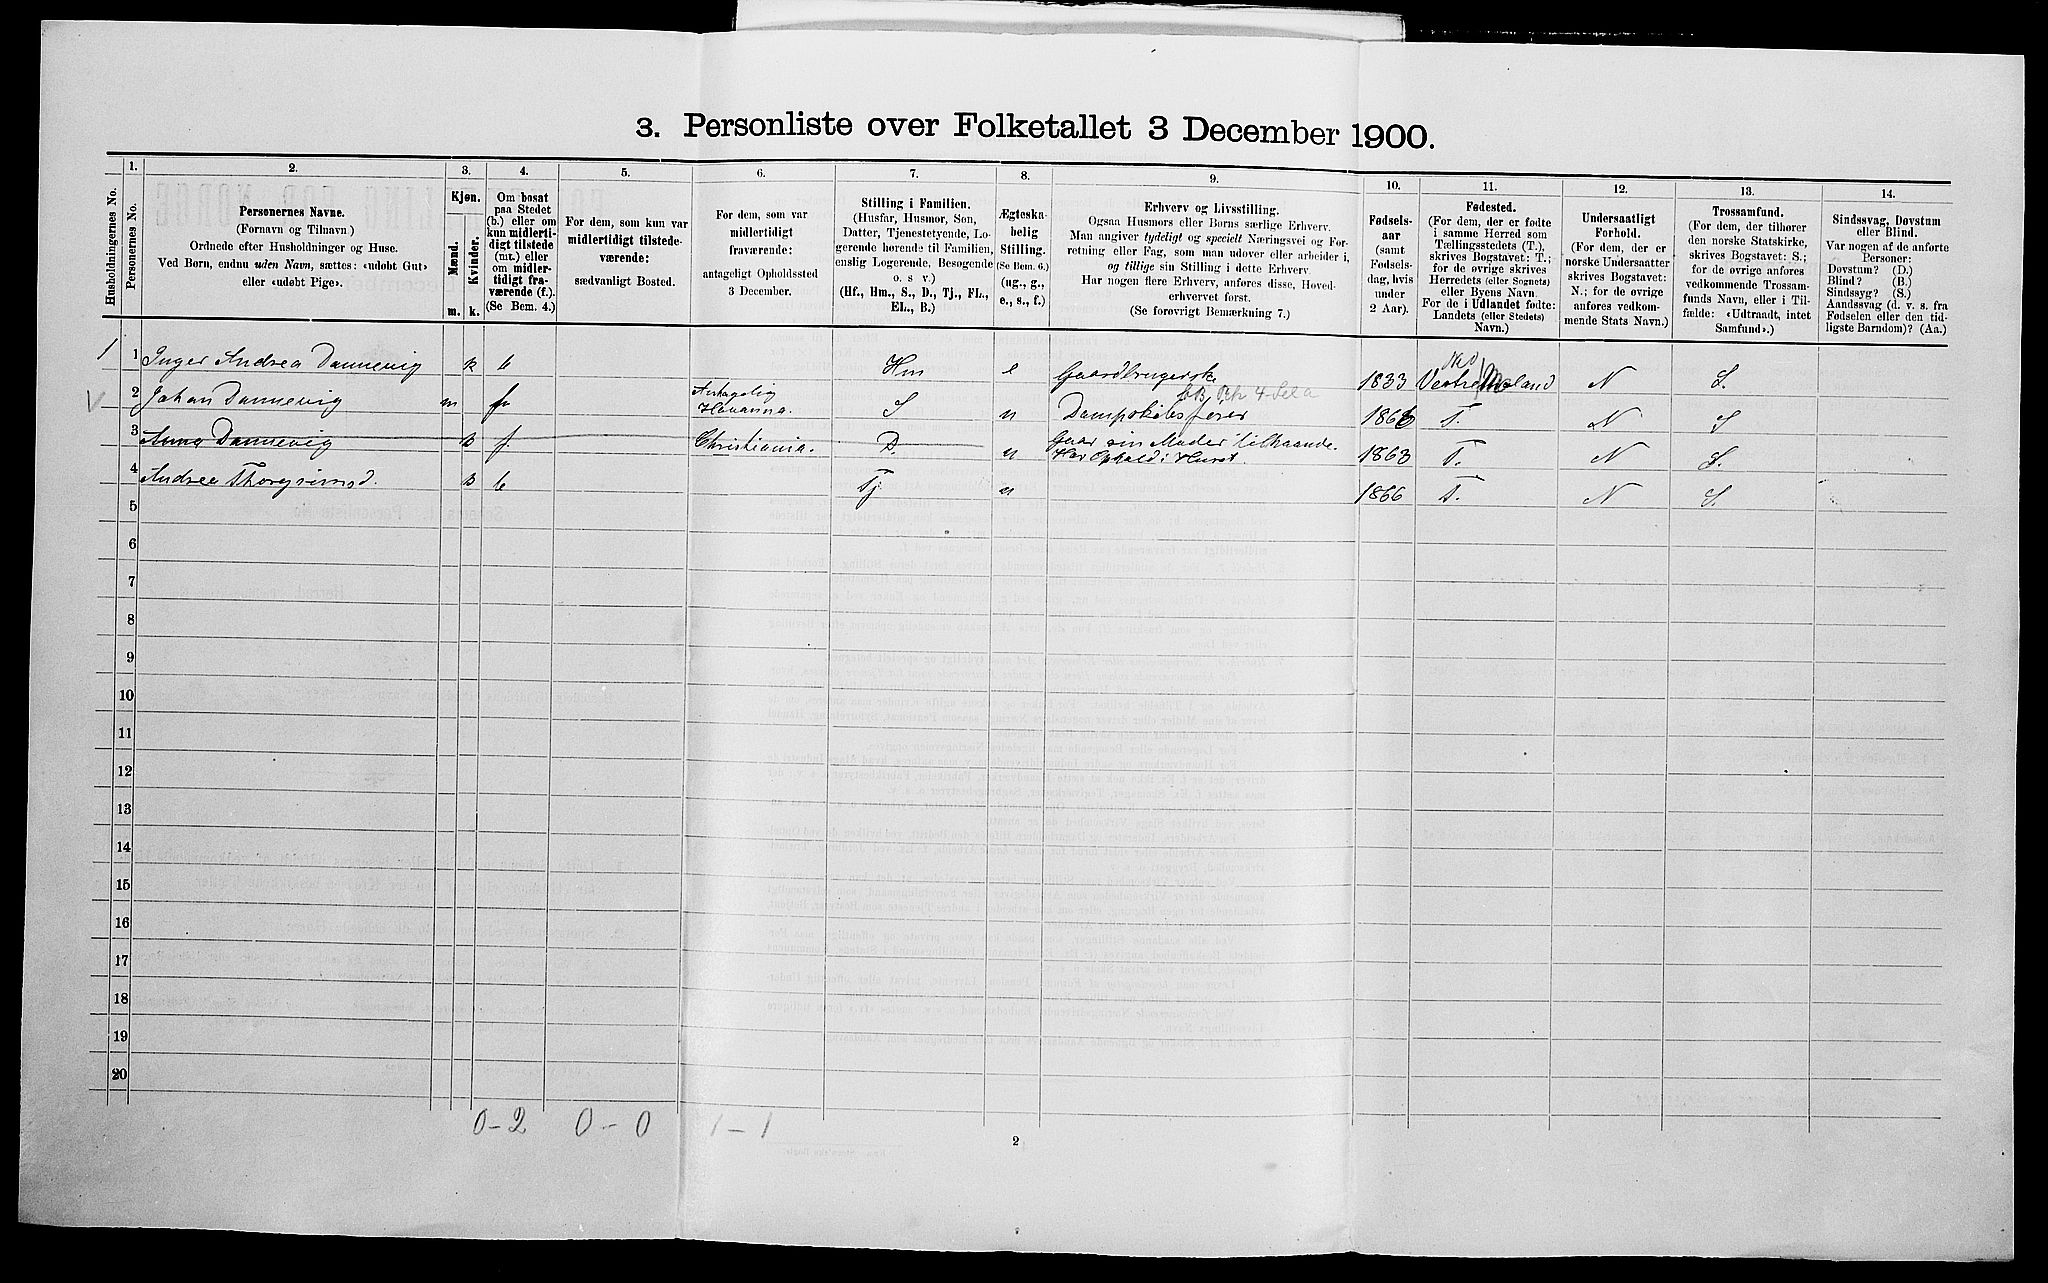 3. Personliste over Folketallet 3 December 1900.
Husholdningernes No.
1.
Personernes No.
2.
Personernes Navne.
(Fornavn og Tilnavn.)
Ordnede efter Husholdninger og Huse.
Ved Børn, endnu uden Navn, sættes: «udøbt Gut»
eller «udøbt Pige».
3.
Kjøn.
Mænd.
Kvinder.
m. k.
4.
Om bosat
paa Stedet
(b.) eller om
kun midlerti-
digt tilstede
(mt.) eller
om midler-
tidigt fra-
værende (f.).
(Se Bem. 4.)
5.
For dem, som kun var
midlertidigt tilstede-
værende:
sædvanligt Bosted.
6.
For dem, som var
midlertidigt
fraværende:
antageligt Opholdssted
3 December.
7.
Stilling i Familien.
(Husfar, Husmor, Søn,
Datter, Tjenestetyende, Lo-
gerende hørende til Familien,
enslig Logerende, Besøgende
o. s. v.)
(Hf., Hm., S., D., Tj., FL.,
EL., B.)
8.
Ægteska-
belig
Stilling.
(Se Bem. 6.)
(ug., g.,
e., s., f.)
9.
Erhverv og Livsstilling.
Ogsaa Husmors eller Børns særlige Erhverv.
Man angiver tydeligt og specielt Næringsvei og For-
retning eller Fag, som man udøver eller arbeider i,
og tillige sin Stilling i dette Erhverv.
Har nogen flere Erhverv, anføres disse, Hoved-
erhvervet først.
(Se forøvrigt Bemærkning 7.)
10.
Fødsels-
aar
(samt
Fødsels-
dag, hvis
under
2 Aar).
11.
Fødested.
(For dem, der er fødte
i samme Herred som
Tællingsstedets (T.),
skrives Bogstavet: T.;
for de øvrige skrives
Herredets (eller Sognets)
eller Byens Navn.
For de i Udlandet fødte:
Landets (eller Stedets)
Navn.)
12.
Undersaatligt
Forhold.
(For dem, der er
norske Undersaatter
skrives Bogstavet:
N.; for de øvrige
anføres vedkom-
mende Stats Navn.)
13.
Trossamfund.
(For dem, der tilhører
den norske Statskirke,
skrives Bogstavet: S.;
for de øvrige anføres
vedkommende Trossam-
funds Navn, eller i Til-
fælde: «Udtraadt, intet
Samfund».)
14.
Sindssvag, Døvstum
eller Blind.
Var nogen af de anførte
Personer:
Døvstum? (D.)
Blind? (B.)
Sindssyg? (S.)
Aandssvag (d. v. s. fra
Fødselen eller den tid-
ligste Barndom)? (Aa.)
1 1 Inger Andrea Dannevig k b Hm e Gaardbrugerske 1833 Vestre Moland N S.
2 Johan Dannevig m f Antagelig Havanna. S u Dampskibsfører 1866 T. N S
3 Anna Dannevig k f. Christiania. D. u Gaar sin Moder tilhaande. Har Ophold i Huset. 1863 T. N S.
4 Andrea Thorgrimsd. k b Tj u 1866 T. N S.
5
6
7
8
9
10
11
12
13
14
15
16
17
18
19
20
0-2 0-0 1-1
2